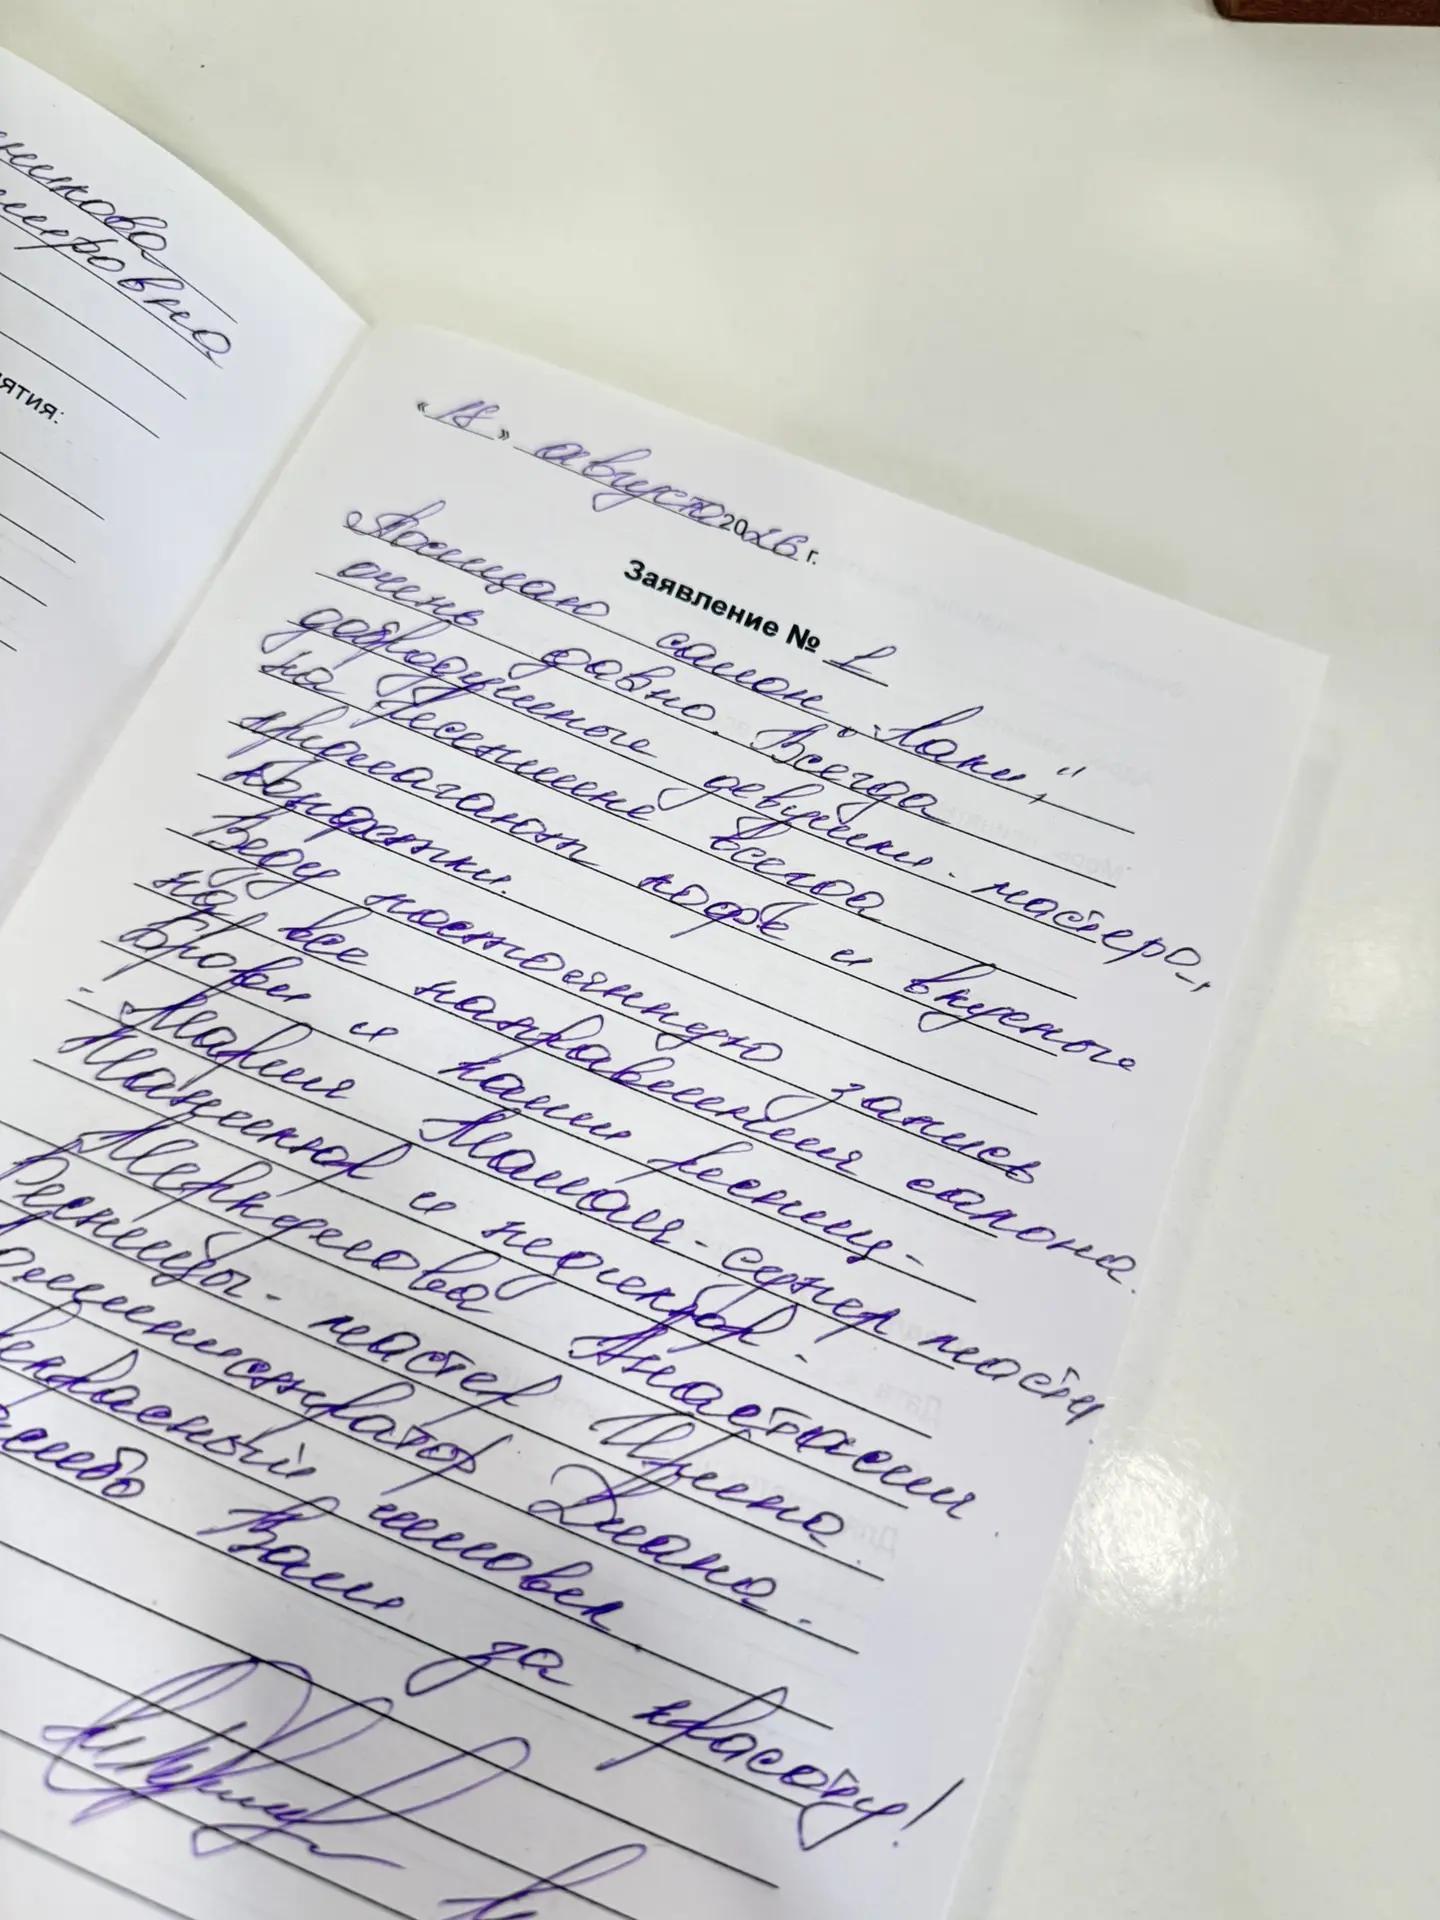 никова
мировна
ятия:
«18» августа 2026 г.
Заявление № 1
Посещаю салон "Лаки",
очень давно. Всегда
добродушные девушки-мастера,
на ресепшене всегда
предлагают кофе и вкусные
конфетки.
Веду постоянную запись
на все направления салона.
Брови и лами ресниц-
- Мария Малая-супер мастер
Маникюр и педикюр-
Меркулова Анастасия
Ресницы-мастер Ирина.
Администратор Диана.
Прекрасный человек.
Спасибо Вам за красоту!